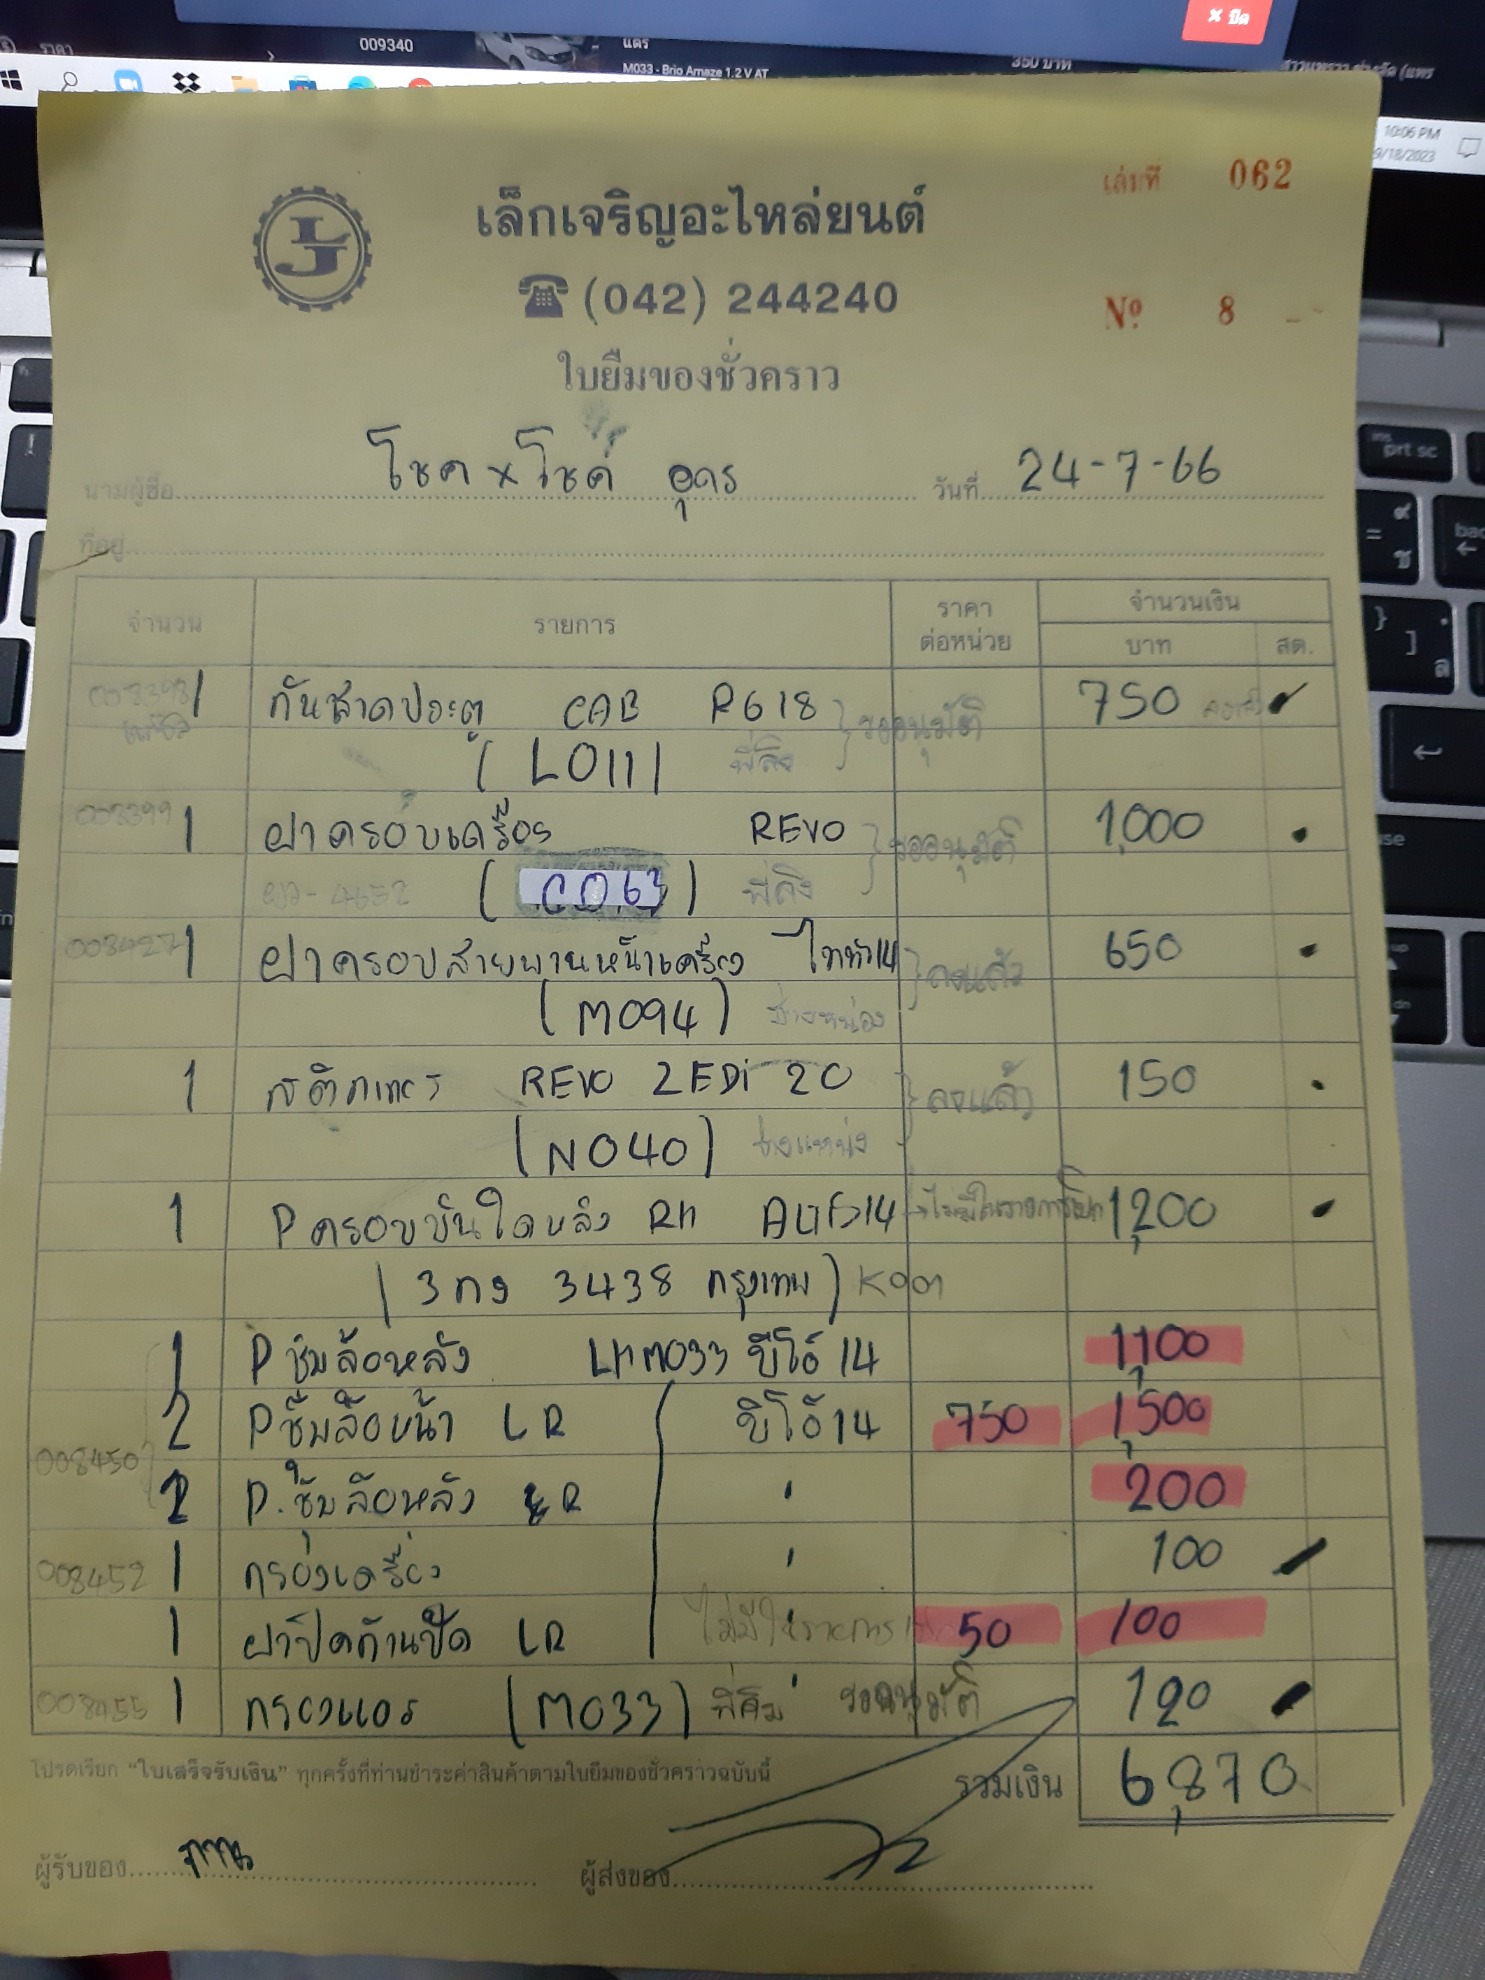 ราคา
009340
M033 - Brio Amaze 1.2 V AT
350 บาท
ปิด
10:06 PM
9/18/2023
เล่มที่ 062
เล็กเจริญอะไหล่ยนต์
(042) 244240
Nº 8
ใบยืมของชั่วคราว
นามผู้ซื้อ โชค x โชค อุดร วันที่ 24-7-66
ที่อยู่
จำนวน รายการ ราคาต่อหน่วย จำนวนเงิน
บาท สต.
1 กันสาดประตู CAB R618 ขออนุมัติ 750
(L0111)
008399 1 ฝาครอบเครื่อง REVO ขออนุมัติ 1,000
(C063)
1 ฝาครอบสายพานหน้าเครื่อง ลงแล้ว 650
(M094) ช่างหน่อง
1 สติกเกอร์ REVO ZEDi 20 ลงแล้ว 150
(N040)
1 P ครอบบันไดหลัง RH 14 1,200
(3กง 3438 กรุงเทพ)
1 P ซุ้มล้อหลัง LH M033 วีโอ้ 14 1,100
2 P ซุ้มล้อหน้า LR วีโอ้ 14 750 1,500
008450 2 P. ซุ้มล้อหลัง R " 200
008452 1 กรองเครื่อง " 100
1 ฝาปิดก้านปัด LR " ไม่มีในรายการ 50 100
008455 1 กรองแอร์ (M033) ขออนุมัติ 120
โปรดเรียก "ใบเสร็จรับเงิน" ทุกครั้งที่ท่านชำระค่าสินค้าตามใบยืมของชั่วคราวฉบับนี้
รวมเงิน 6,870
ผู้รับของ ผู้ส่งของ